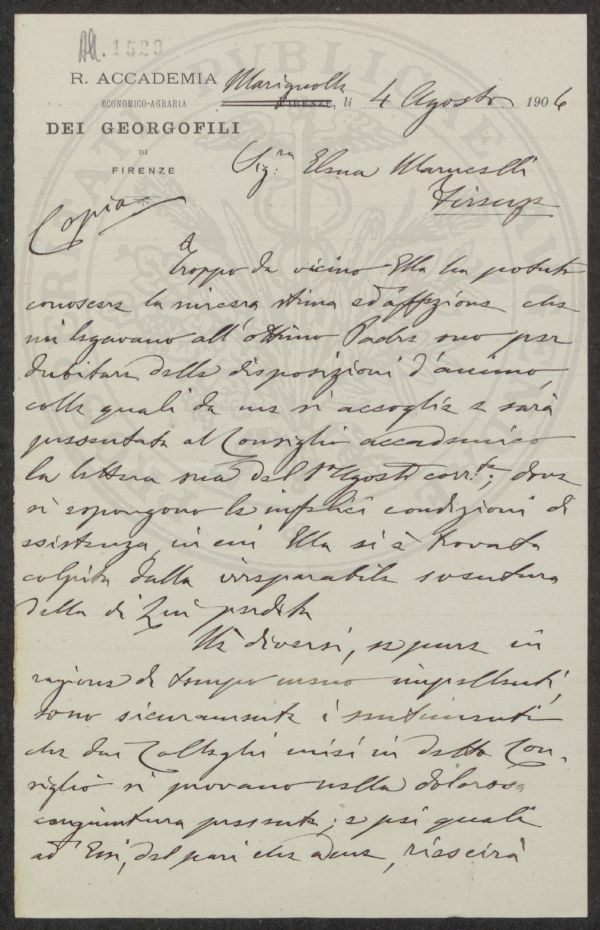 AA. 1529
R. ACCADEMIA
ECONOMICO-AGRARIA
DEI GEORGOFILI
DI
FIRENZE
Marignolle
FIRENZE, li 4 Agosto 1906
Sig.ra Elena Marucelli
Firenze
Copia
Troppo da vicino Ella ha potuto
conoscere la sincera stima ed affezione che
mi legavano all'ottimo Padre suo per
dubitare delle disposizioni d'animo,
colle quali da me si accoglie e sarà
presentata al Consiglio accademico
la lettera sua del 1º Agosto corr.te; dove
si espongono le infelici condizioni di
esistenza, in cui Ella si è trovata
colpita dalla irreparabile sventura
della di Lui perdita
Nè diversi, seppure in
ragione di tempo meno impellenti,
sono sicuramente i sentimenti
che dai Colleghi miei in detto Con-
siglio si provano nella dolorosa
congiuntura presente; e pei quali
ad Essi, del pari che a me, riescirà